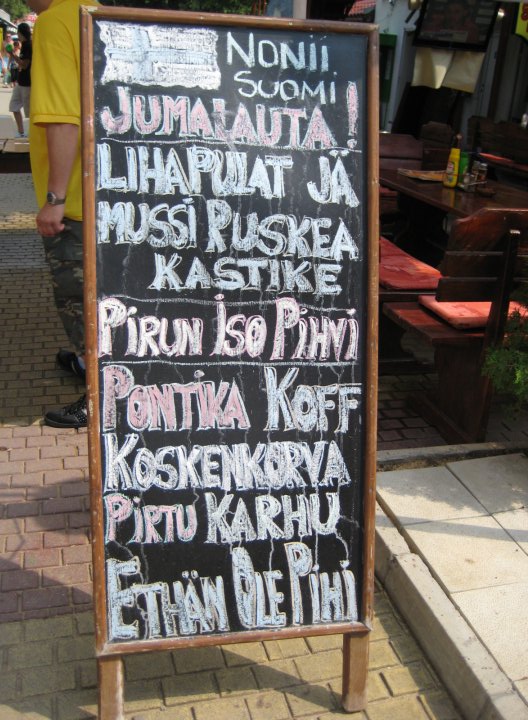 NONII
SUOMI
JUMALAUTA!
LIHAPULAT JÄ
MUSSI RUSKEA
KASTIKE
PIRUN ISO PIHVI
PONTIKA KOFF
KOSKENKORVA
PIRTU KARHU
ETHÄN OLE PIHI